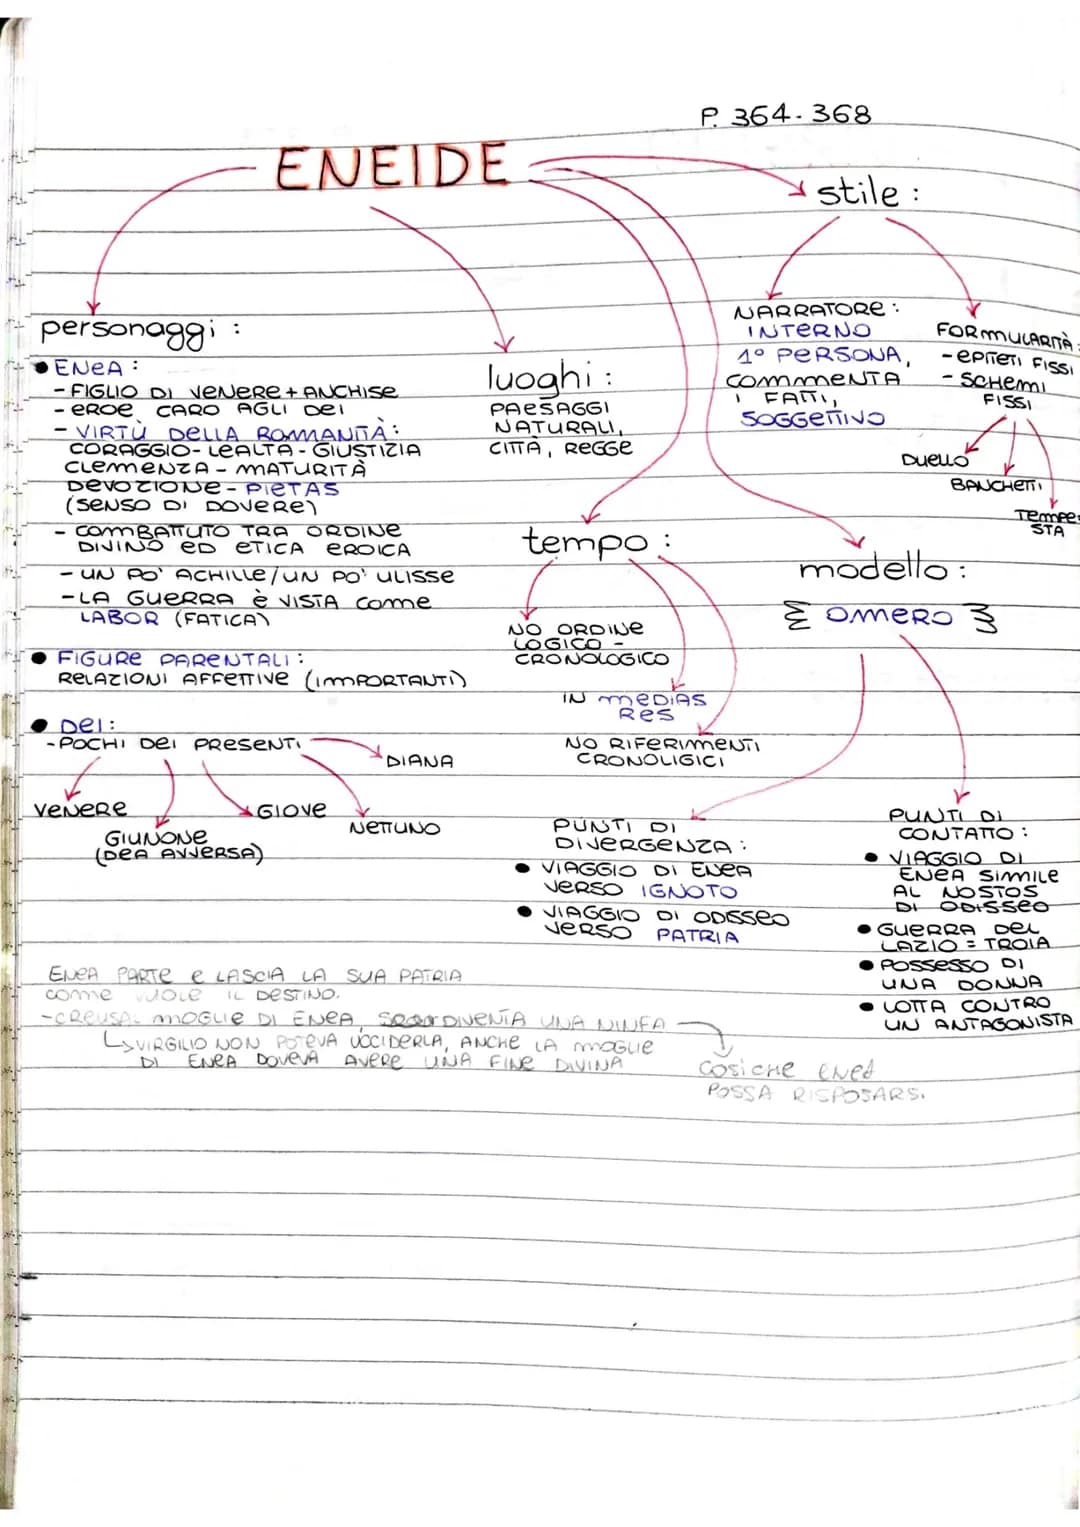 P. 364-368
ENEIDE
stile :
NARRATORE :
INTERNO
1° PERSONA,
COMMENTA
I FATTI,
SOGGETTIVO
FORMULARITÀ:
- EPITETI FISSI
- SCHEMI
FISSI
DUELLO
BANCHETTI
TEMPE-
STA
personaggi :
• ENEA :
- FIGLIO DI VENERE + ANCHISE
- EROE CARO AGLI DEI
- VIRTÙ DELLA ROMANITÀ:
CORAGGIO - LEALTA - GIUSTIZIA
CLEMENZA - MATURITÀ
DEVOZIONE - PIETAS
(SENSO DI DOVERE)
- COMBATTUTO TRA ORDINE
DIVINO ED ETICA EROICA
- UN PO' ACHILLE/UN PO' ULISSE
- LA GUERRA È VISTA COME
LABOR (FATICA)
• FIGURE PARENTALI :
RELAZIONI AFFETTIVE (IMPORTANTI)
• DEI :
- POCHI DEI PRESENTI
DIANA
VENERE
GIUNONE
(DEA AVVERSA)
GIOVE
NETTUNO
luoghi :
PAESAGGI
NATURALI,
CITTÀ, REGGE
tempo :
NO ORDINE
LOGICO -
CRONOLOGICO
IN MEDIAS
RES
NO RIFERIMENTI
CRONOLIGICI
modello :
OMERO
PUNTI DI
DIVERGENZA :
• VIAGGIO DI ENEA
VERSO IGNOTO
• VIAGGIO DI ODISSEO
VERSO PATRIA
PUNTI DI
CONTATTO :
• VIAGGIO DI
ENEA SIMILE
AL NOSTOS
DI ODISSEO
• GUERRA DEL
LAZIO = TROIA
• POSSESSO DI
UNA DONNA
• LOTTA CONTRO
UN ANTAGONISTA
ENEA PARTE E LASCIA LA SUA PATRIA
COME VUOLE IL DESTINO.
- CREUSA: MOGLIE DI ENEA, DIVENTA UNA NINFA
VIRGILIO NON POTEVA UCCIDERLA, ANCHE LA MOGLIE
DI ENEA DOVEVA AVERE UNA FINE DIVINA
COSÌ CHE ENEA
POSSA RISPOSARSI